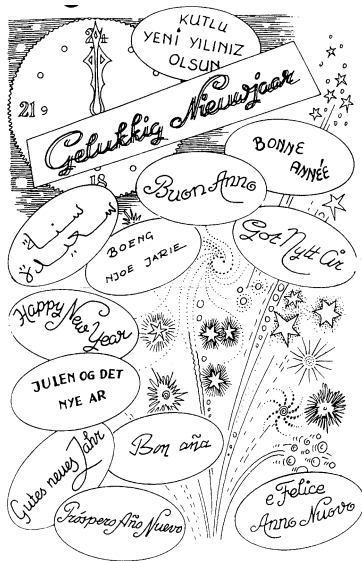 KUTLU
YENİ YILINIZ
OLSUN
24
21 9
18
Gelukkig Nieuwjaar
BONNE
ANNÉE
Buon Anno
سنة
سعيدة
BOENG
NJOE JARIE
Got Nytt År
Happy New
Year
JULEN OG DET
NYE AR
Gutes neues Jahr
Bon aña
Próspero Año Nuevo
e Felice
Anno Nuovo